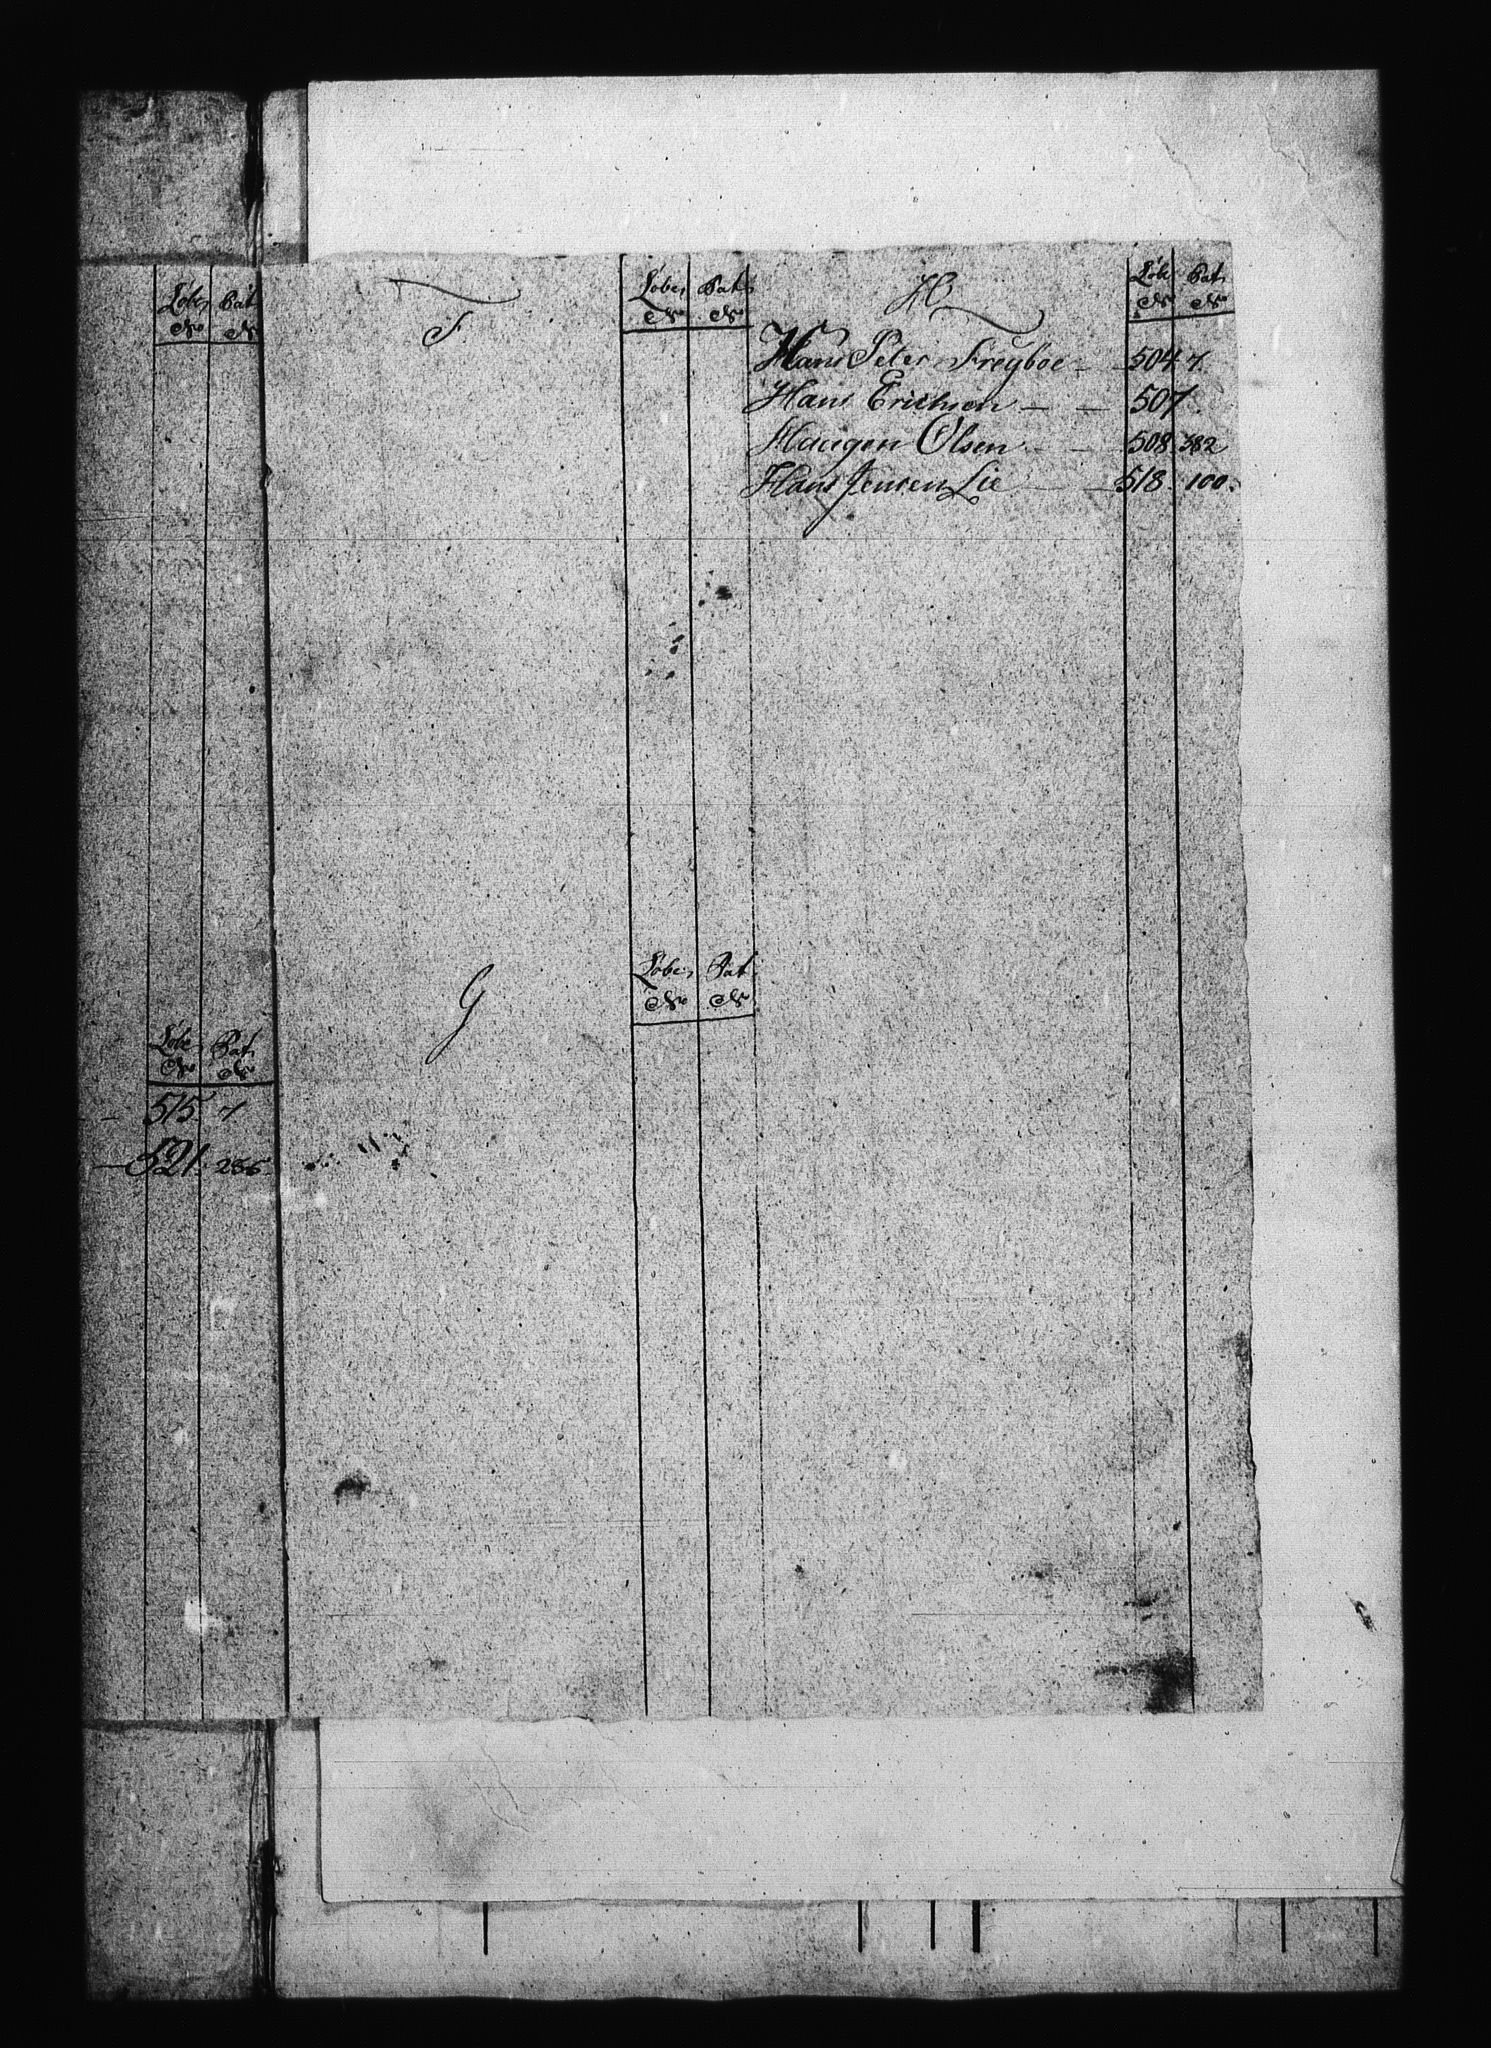 Løbe Pat
No No
Løbe Pat
No No
515. 7
521. 286.
F
Løbe Pat
No No
G
Løbe Pat
No No
H
Løbe Pat
No No
Hans Peter Freyboe - - 504 7.
Hans Erichsen - - 507.
Haugen Olsen - - 508. 382
Hans Jensen Lie - - 518. 100.